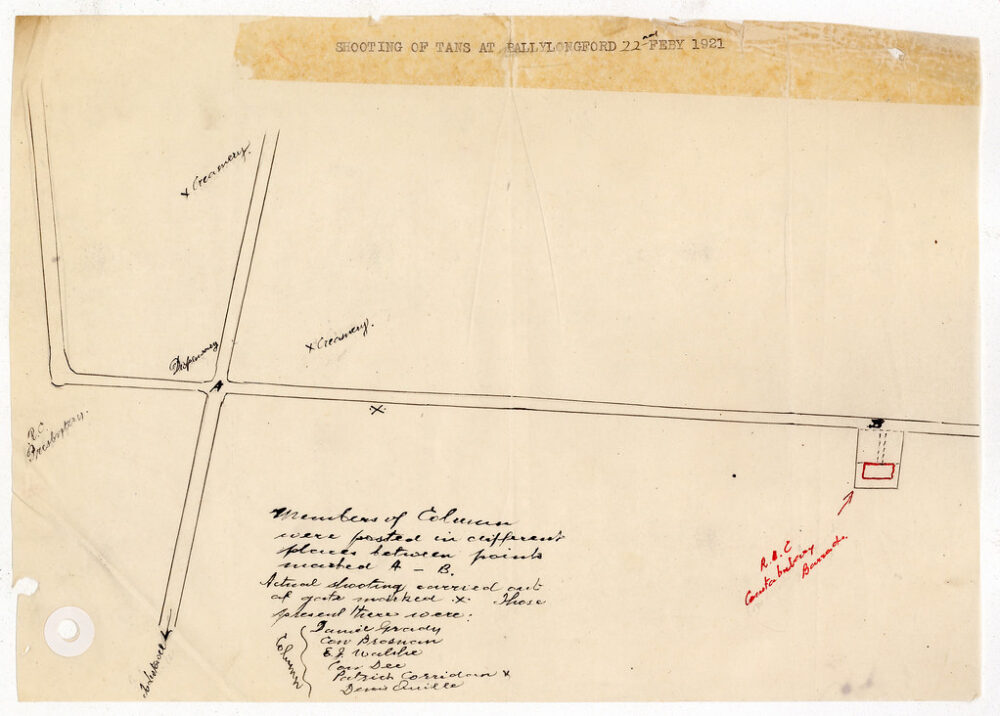 SHOOTING OF TANS AT BALLYLONGFORD 22nd FEBY 1921
x Creamery.
x Creamery.
Dispensary
A
x
B
R.C.
Presbytery.
R.I.C
Constabulary
Barrack.
Members of Column
were posted in different
places between points
marked A - B.
Actual shooting carried out
at gate marked x. Those
present there were:
Column
Danie Grady
Con Brosnan
E.J. Walshe
Con Dee
Patrick Corridan x
Denis Quille
To Listowel